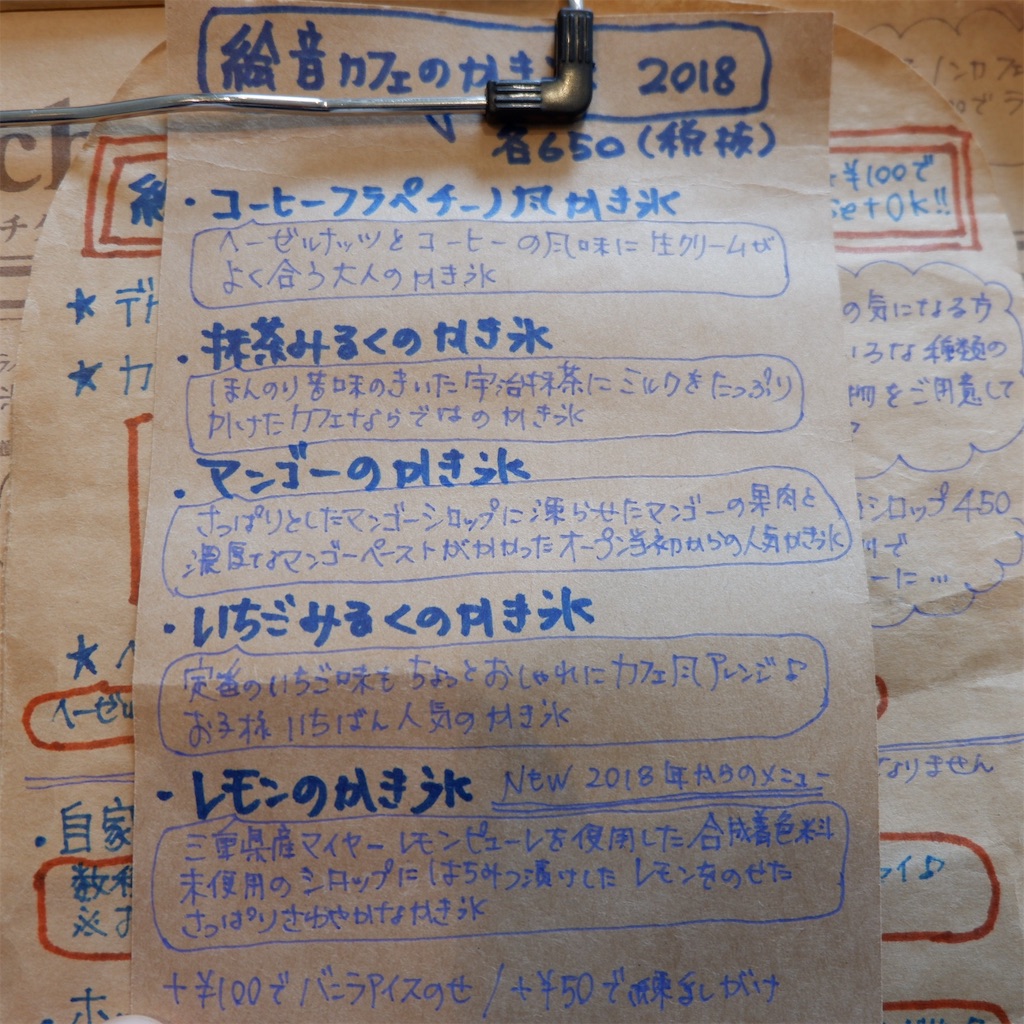 絵音カフェのかき氷 2018
各650(税抜)
・コーヒーフラペチーノ風かき氷
ヘーゼルナッツとコーヒーの風味に生クリームが
よく合う大人のかき氷
・抹茶みるくのかき氷
ほんのり苦味のきいた宇治抹茶にミルクをたっぷり
かけたカフェならではのかき氷
・マンゴーのかき氷
さっぱりとしたマンゴーシロップに凍らせたマンゴーの果肉と
濃厚なマンゴーペーストがかかったオープン当初からの人気かき氷
・いちごみるくのかき氷
定番のいちご味もちょっとおしゃれにカフェ風アレンジ♪
お子様いちばん人気のかき氷
・レモンのかき氷 New 2018年からのメニュー
三重県産マイヤーレモンピューレを使用した合成着色料
未使用のシロップにはちみつ漬けしたレモンをのせた
さっぱりさわやかなかき氷
+¥100でバニラアイスのせ/+¥50で練乳がけ
+¥100で
set Ok!!
の気になるウ
ろな種類の
をご用意して
シロップ450
で
ーに…
なりません
★デ
★カ
★ヘ
ヘーゼル
・自家
数種
氷お
イ♪
・ホ